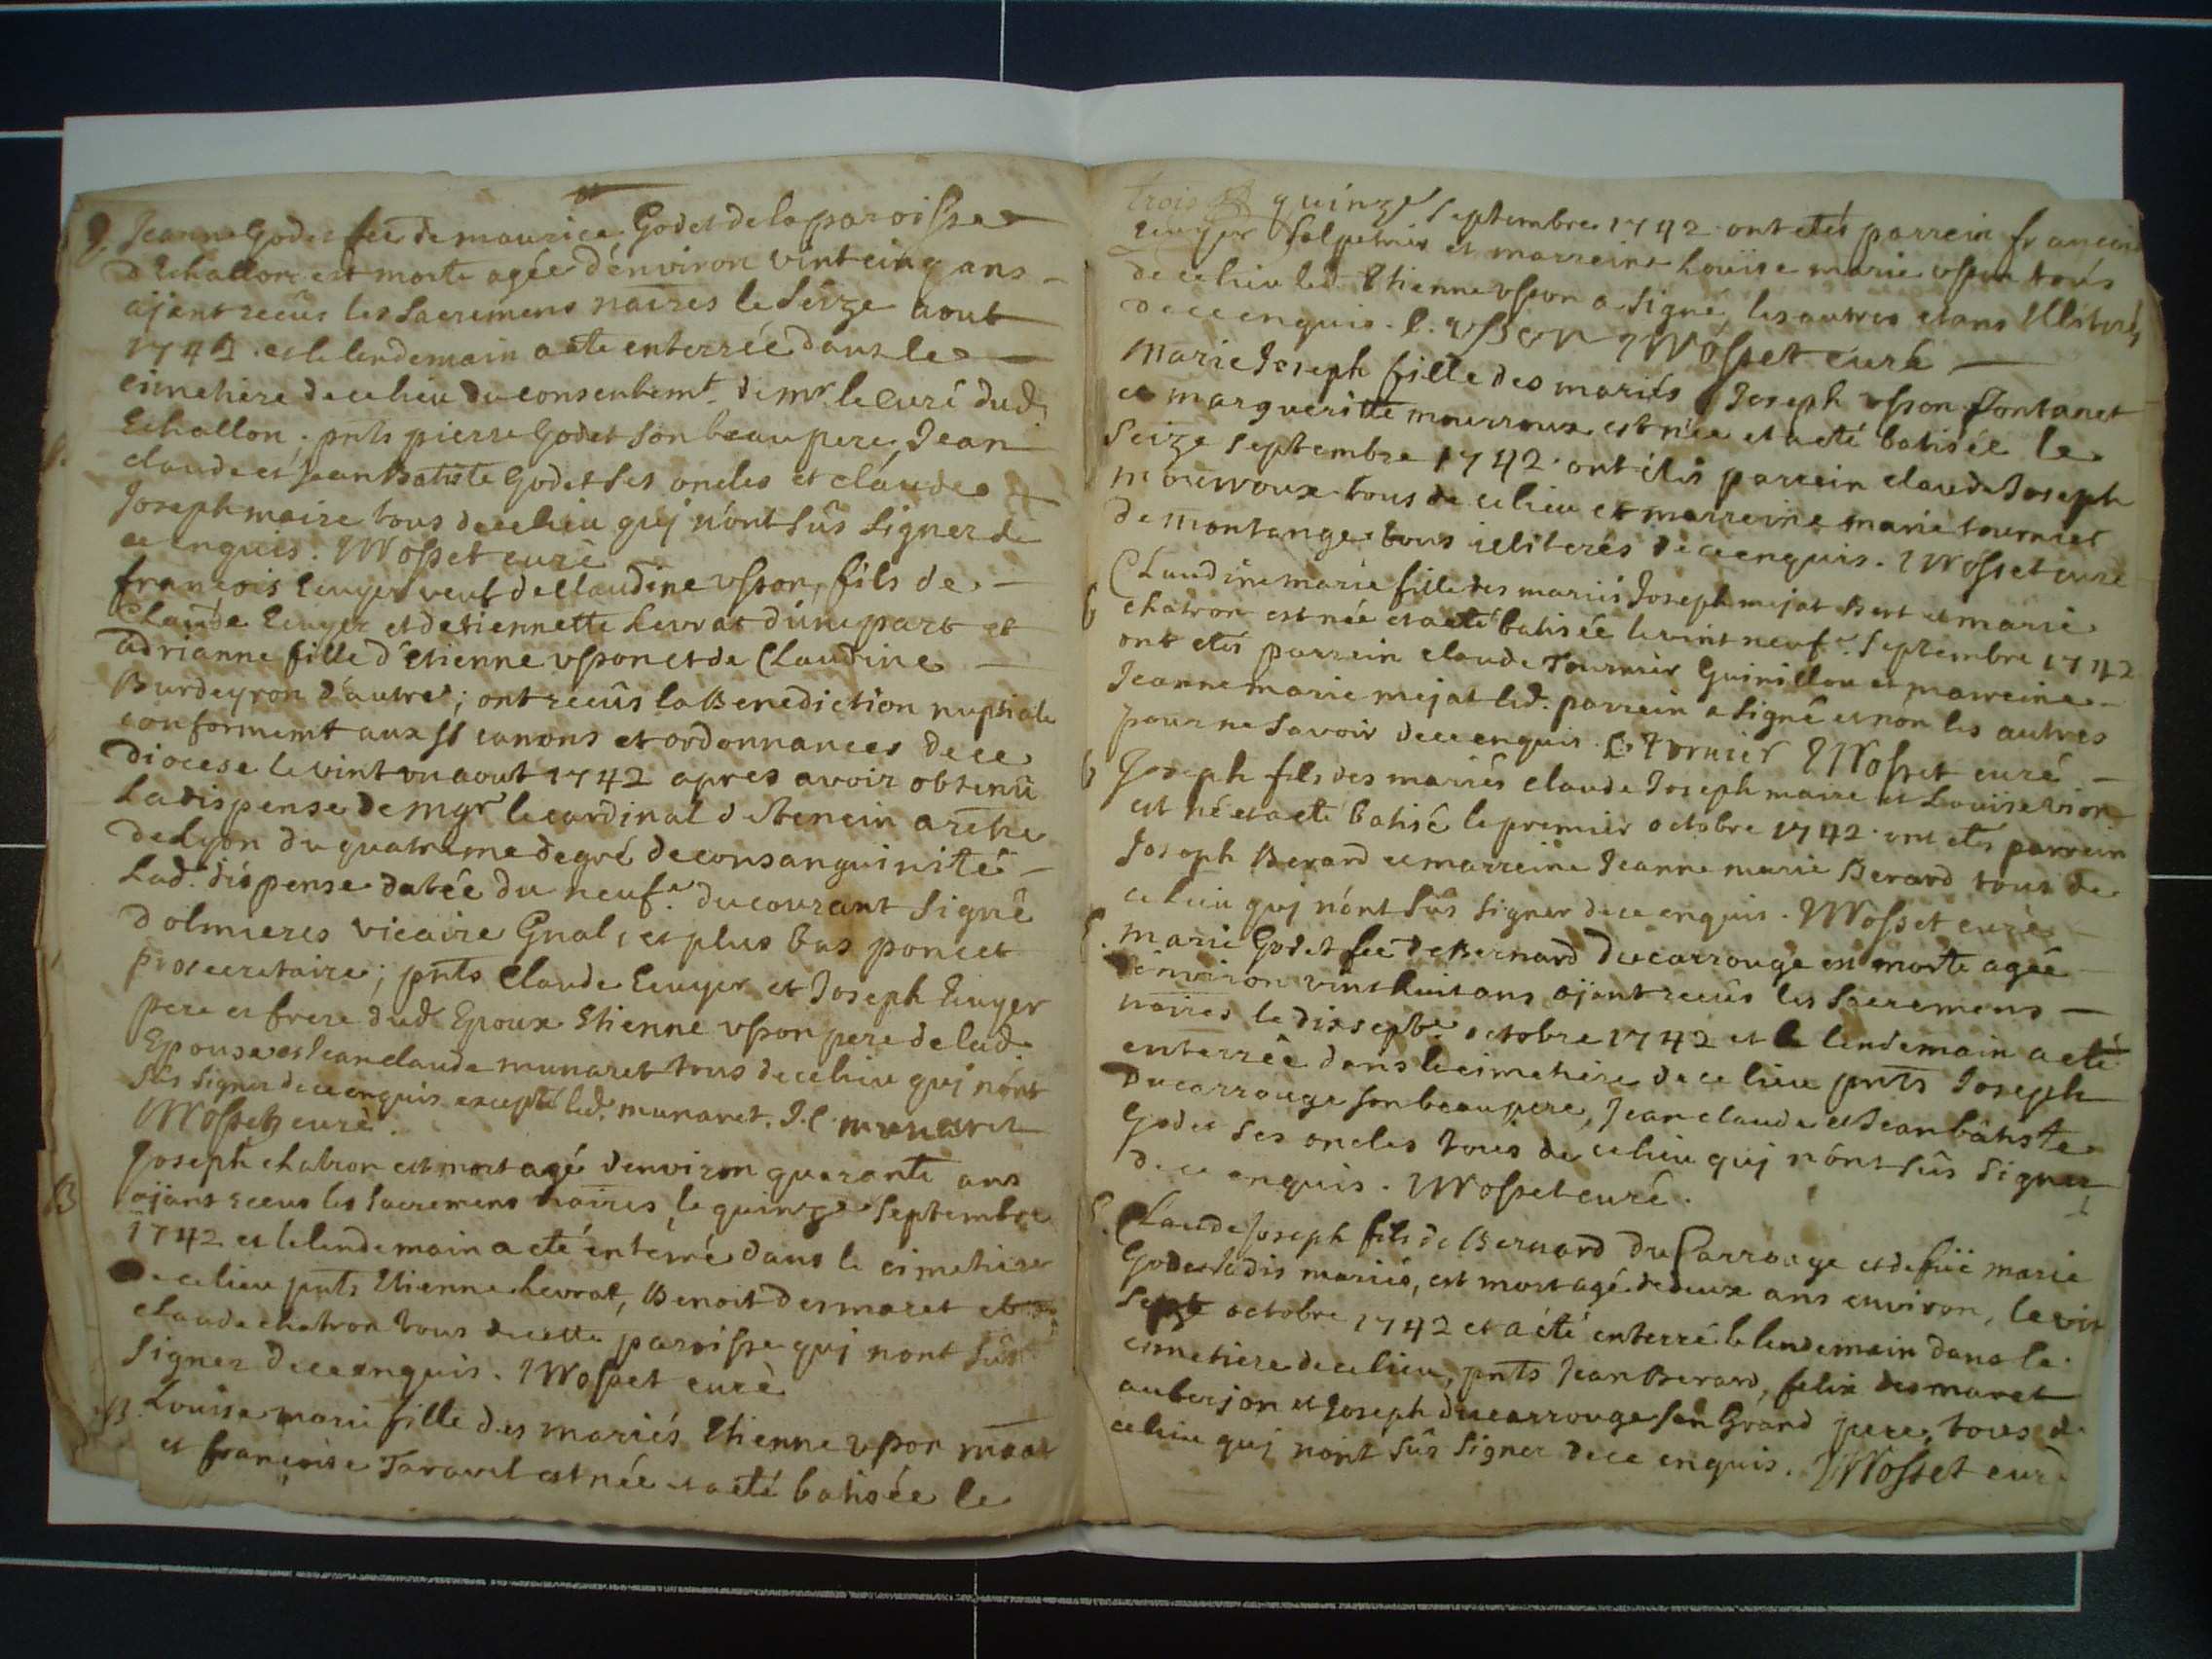 Jeanne Godet fee de maurice Godet de la paroisse
d'Echallon est morte agée d'environ vint cinq ans
ajant recûs les Sacremens naires le Seize aout
1742. et le lendemain a eté enterrée dans le
cimetiere de ce lieu du consentemt. de mr le Curé dud.
Echallon. pnts pierre Godet son beau pere, Jean
claude et Jean Batiste Godet ses oncles et claude
Joseph maire tous de ce lieu qui n'ont sûs signer de
ce enquis. Mosset curé
francois Euuyer veuf de Claudine vsson, fils de
Claude Euuyer et detiennette Levrat d'une part et
adrianne fille d'Etienne vsson et de Claudine
Burdeyron d'autre; ont recûs la Benediction nuptiale
conformemt aux Sts canons et ordonnances de ce
diocese le vint vn aout 1742 apres avoir obtenû
La dispense de mgr le cardinal de tencin archv.
de Lyon du quatrieme degré de consanguinité
Lad. dispense datée du neufe. du courant Signé
dolmieres vicaire Gnal, et plus bas poncet
prosecretaire; pnts Claude Euuyer et Joseph Euuyer
pere et frere dud. Epoux Etienne vsson pere de lad.
Epouse et Jean claude munaret tous de ce lieu qui n'ont
sûs signer de ce enquis excepté led. munaret. J. C. munaret
Mosset curé.
Joseph chatron est mort agé d'environ quarante ans
ajant receus les Sacremens naires, le quinze Septembre
1742 et le lendemain a eté enterré dans le cimetiere
de ce lieu pnts Etienne Levrat, Benoit desmaret et
claude chatron tous de cette paroisse qui nont sûs
Signer de ce enquis. Mosset curé
B. Louise marie fille des mariés Etienne vsson
et françoise Tavarel est née et a eté batisée le
trois quinze Septembre 1742 ont etés parrein francois
Euuyer Salpetrier et marreine Louïse marie vsson tous
de ce lieu led. Etienne vsson a Signé, les autres etans Illiterés
de ce enquis. E. VSSon Mosset curé
Marie Joseph fille des mariés Joseph vsson fontanet
et marguerítte mourroux est née et a eté batisée le
Seize Septembre 1742. ont étés parrein claude Joseph
mourroux tous de ce lieu et marreine marie tournier
de montange tous illiterés de ce enquis. Mosset curé
Claudine marie fille des mariés Joseph mejat Bert et marie
chatron est née et a eté batisée le vint neufe. Septembre 1742
ont etés parrein claude Tournier Guinillon et marreine
Jeanne marie mejat led. parrein a signé et nón les autres
pour ne Savoir de ce enquis. C. Tornier Mosset curé
b Joseph fils des mariés claude Joseph maire et Louise vion
est né et a eté batisé le premier octobre 1742. ont etés parrein
Joseph Berard et marreine Jeanne marie Berard tous de
ce lieu qui n'ont sûs signer de ce enquis. Mosset curé
marie Godet fee de Bernard Ducarrouge est morte agée
d'environ vint huit ans ajant recûs les Sacremens
naires le dixseptbe octobre 1742 et le lendemain a eté
enterrée dans le cimetiere de ce lieu pnts Joseph
Ducarrouge son beau pere, Jean claude et Jean batiste
Godet ses oncles tous de ce lieu qui n'ónt sûs Signer
de ce enquis. Mosset curé.
Claude Joseph fils de Bernard du Carrouge et de füe marie
Godet Jadis mariés, est mort agé de deux ans environ, le vin
Sept octobre 1742 et a eté enterré le lendemain dans le
cimetiere de ce lieu, pnts Jean Berard, felix desmaret
auberjon et Joseph ducarrouge son Grand pere, tous de
ce lieu qui n'ont sûs signer de ce enquis. Mosset curé